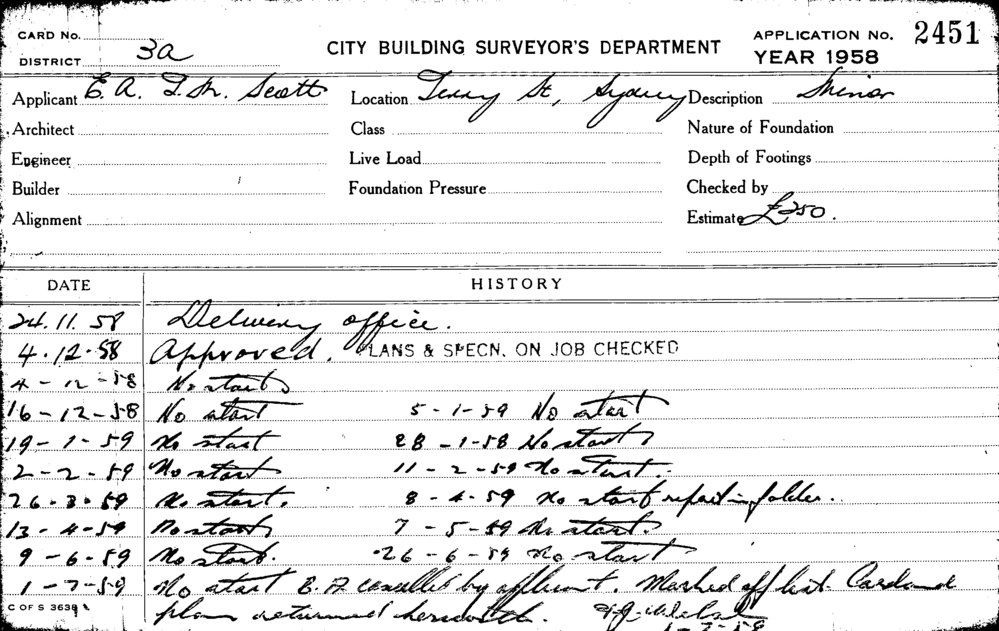 CARD No.
DISTRICT 3a
CITY BUILDING SURVEYOR'S DEPARTMENT
APPLICATION No. 2451
YEAR 1958
Applicant E. A. T. Scott Location Terry St, Sydney Description Minor
Architect Class Nature of Foundation
Engineer Live Load Depth of Footings
Builder Foundation Pressure Checked by
Alignment Estimate £250.
DATE HISTORY
24.11.58 Delivery office.
4.12.58 Approved. PLANS & SPECN. ON JOB CHECKED
4-12-58 No start
16-12-58 No start 5-1-59 No start
19-1-59 No start 28-1-58 No start
2-2-59 No start 11-2-59 No start.
26.3.59 No start. 8-4-59 No start report in folder.
13-4-59 No start 7-5-59 No start.
9-6-59 No start. 26-6-59 No start
1-7-59 No start B.A cancelled by applicant. Marked off list. Card and
plans returned herewith.
C OF S 3639